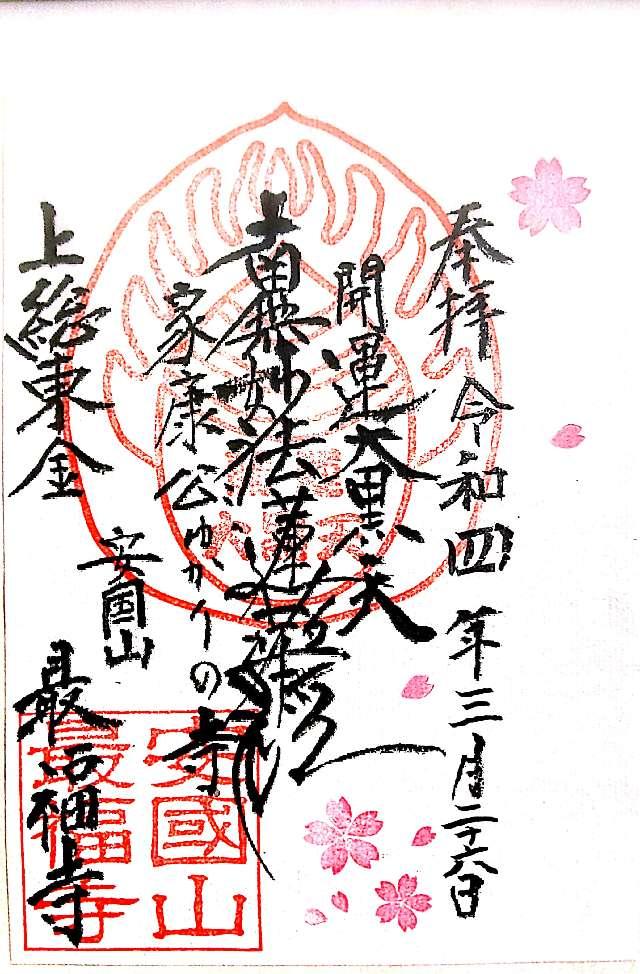 奉拝 令和四年三月二十六日
開運大黒天
南無妙法蓮華経
家康公ゆかりの寺
上総東金
安国山
最福寺
安國山
最福寺